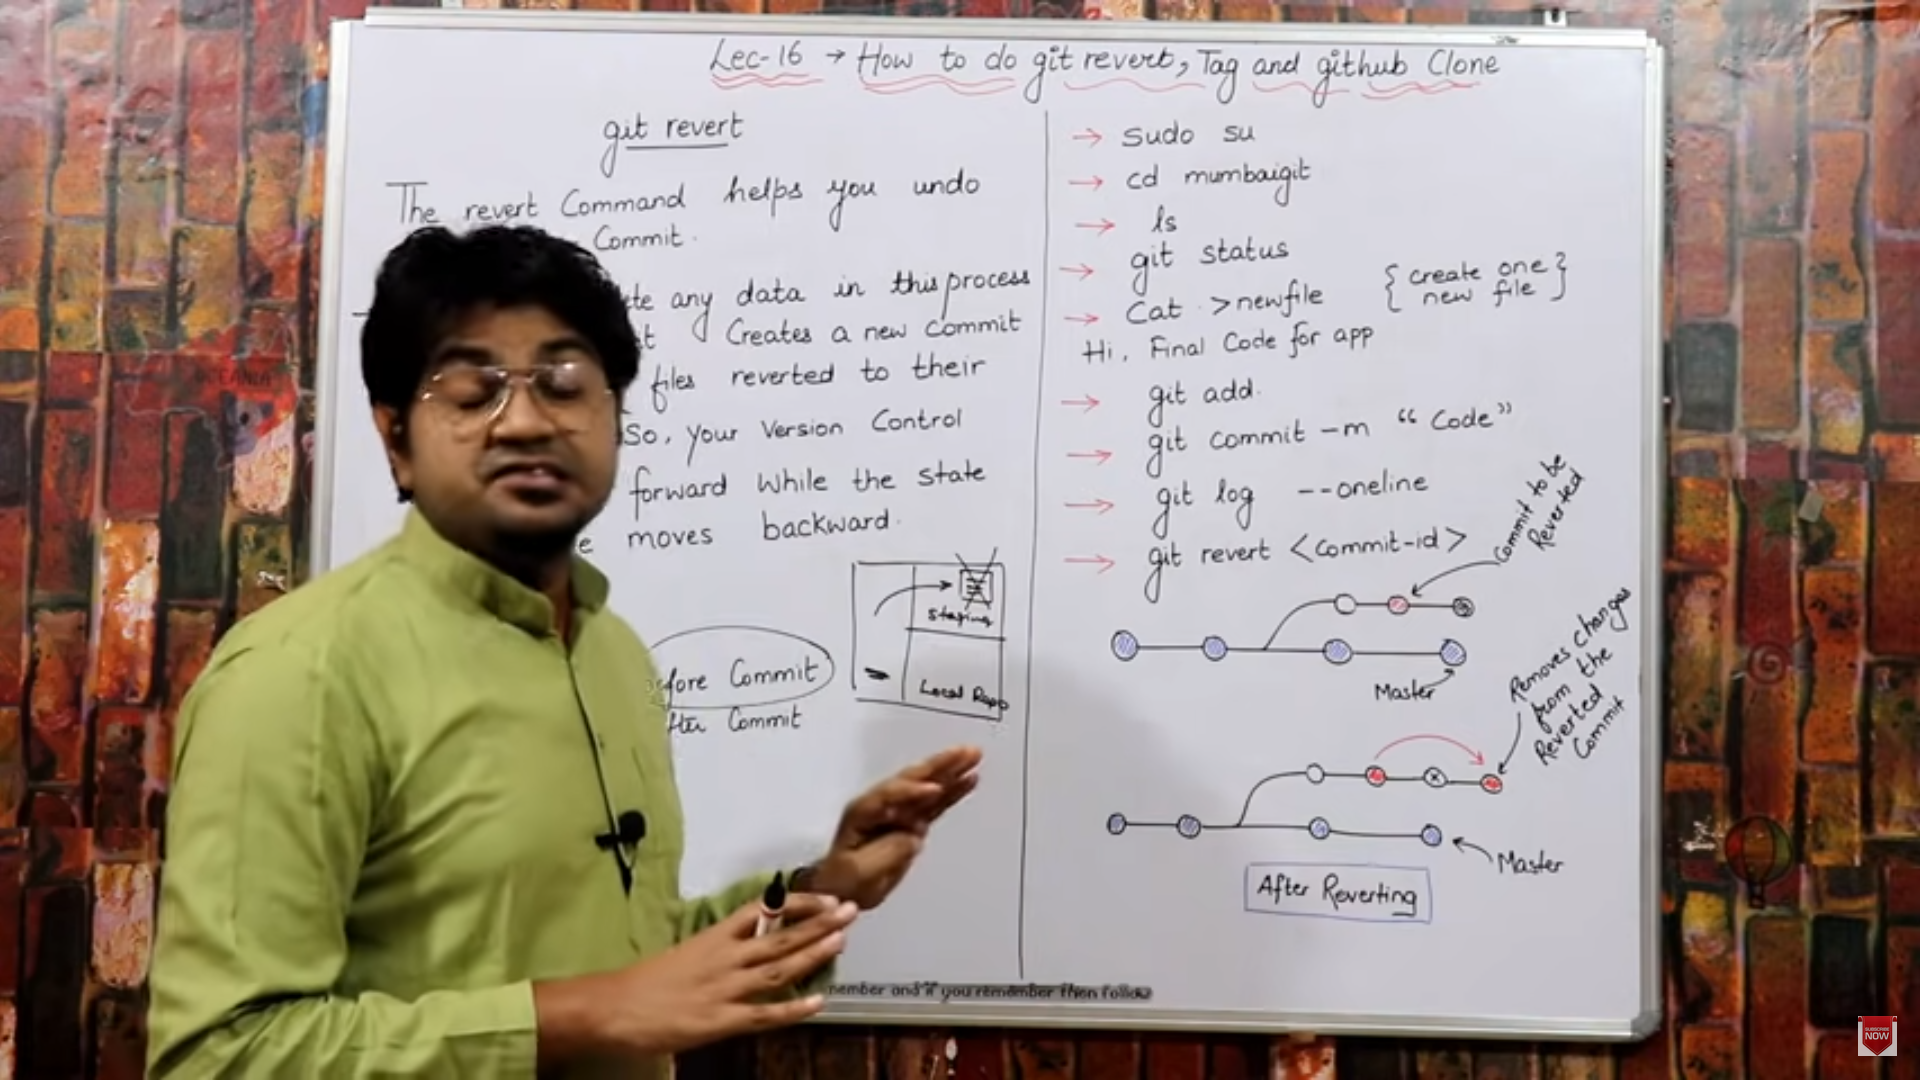 Lec-16 → How to do git revert, Tag and github Clone
git revert
The revert Command helps you undo
Commit.
any data in this process
Creates a new Commit
files reverted to their
So, your Version Control
forward while the state
moves backward.
Before Commit
After Commit
Staging
Local Repo
→ sudo su
→ cd mumbaigit
→ ls
→ git status
→ Cat >newfile {create one new file}
Hi, Final Code for app
→ git add.
→ git commit -m "Code"
→ git log --oneline
→ git revert <commit-id>
Commit to be
Reverted
Master
Removes changes
from the
Reverted
Commit
Master
After Reverting
member and if you remember then follow
SUBSCRIBE
NOW